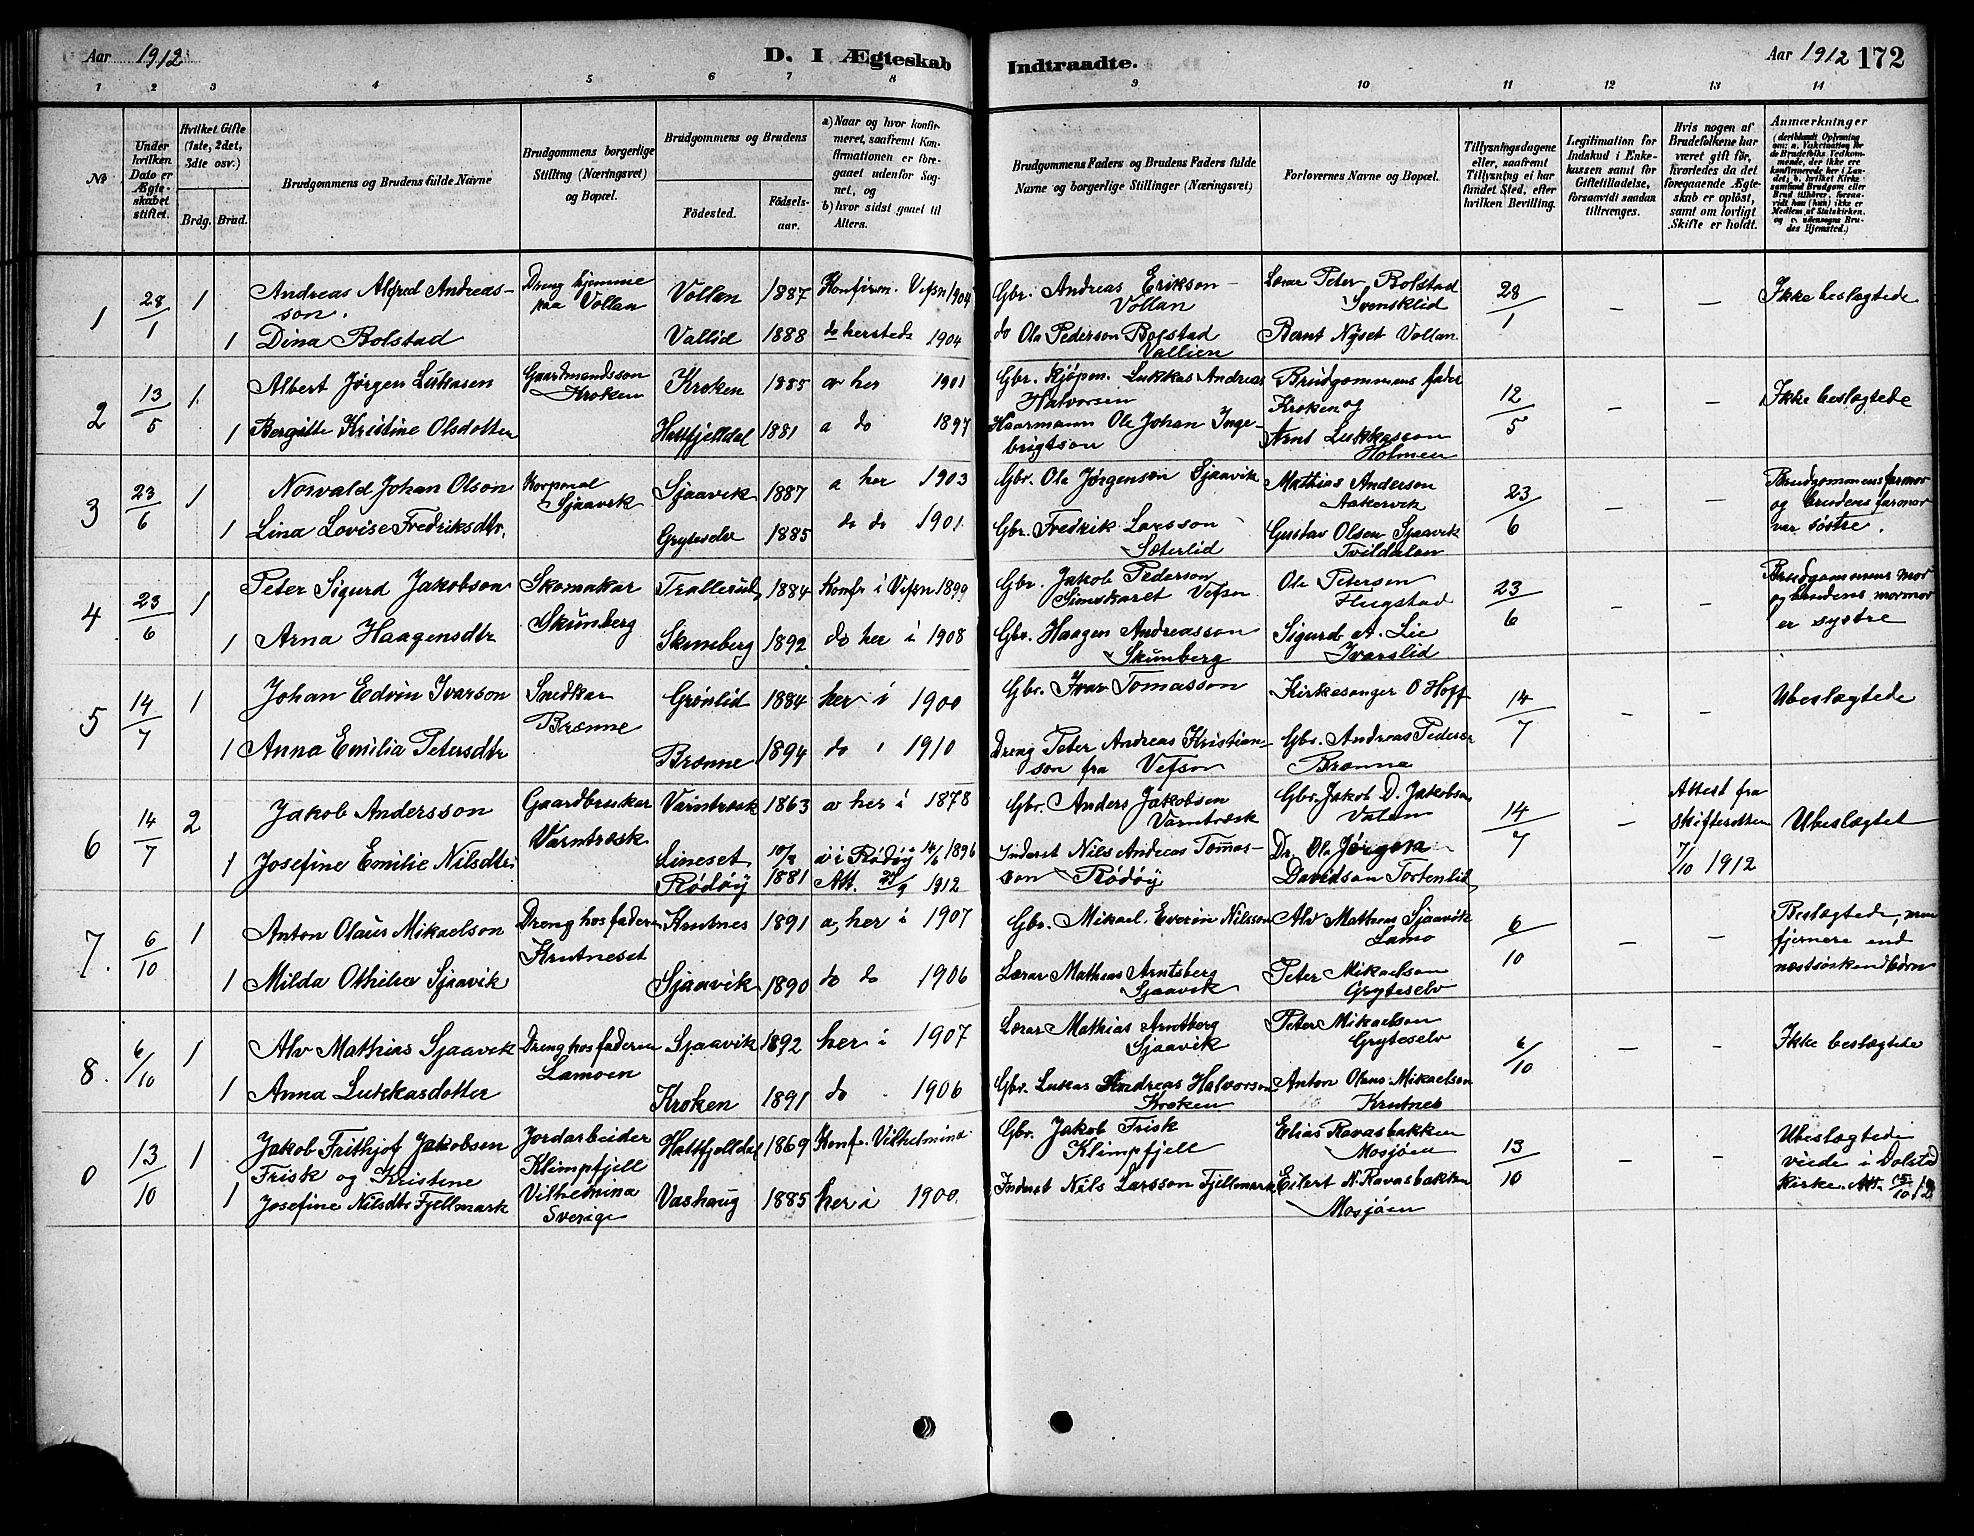 Aar 1912
D. I Ægteskab
Indtraadte.
Aar 1912 172
1 2 3 4 5 6 7 8 9 10 11 12 13 14
No
Under hvilken Dato er Ægteskabet stiftet.
Hvilket Gifte (1ste, 2det, 3die osv.)
Brdg. Brud.
Brudgommens og Brudens fulde Navne
Brudgommens borgerlige Stilling (Næringsvei) og Bopæl.
Brudgommens og Brudens
Födested.
Födselsaar.
a) Naar og hvor konfirmeret, saafremt Konfirmationen er foregaaet udenfor Sognet, og
b) hvor sidst gaaet til Alters.
Brudgommens Faders og Brudens Faders fulde Navne og borgerlige Stillinger (Næringsvei)
Forlovernes Navne og Bopæl.
Tillysningsdagene eller, saafremt Tillysning ei har fundet Sted, efter hvilken Bevilling.
Legitimation for Indskud i Enkekassen samt for Giftetilladelse, forsaavidt saadan tiltrænges.
Hvis nogen af Brudefolkene har været gift för, hvorledes da det foregaaende Ægteskab er oplöst, samt om lovligt Skifte er holdt.
Anmærkninger
(deriblandt Oplysning om: a. Vakcination for de Brudefolks Vedkommende, der ikke ere konfirmerede her i Landet; b. hvilket Kirkesamfund Brudgom eller Brud tilhører, forsaavidt han (hun) ikke er Medlem af Statskirken, og c. udensogns Brudes Hjemsted.)
1 28/1 1 Andreas Alfred Andreas- Dreng hjemme Vollan 1887 Konfirm. Vefsn 1904 Gbr. Andreas Erikson Lærar Peter Bolstad 28/1 — — Ikke beslægtede
son. paa Vollan Vollan Svensklid
1 Dina Bolstad Vallid 1888 do hersteds 1904 do Ola Pederson Bolstad Bernt Nyset Vollan
Vallien
2 13/5 1 Albert Jørgen Lukasen Gaardmandsson Kroken 1885 av her 1901 Gbr. Kjøpm. Lukkas Andreas Brudgommens fader 12/5 — — Ikke beslægtede
Kroken Halvorsen Kroken og
1 Bergitte Kristine Olsdotter Hattfjelldal 1881 a do 1897 Haarmann Ole Johan Inge- Arnt Lukkasson
brigtson Holmen
3 23/6 1 Norvald Johan Olson Korporal Sjaavik 1887 a her 1903 Gbr. Ole Jørgenson Sjaavik Mathias Anderson 23/6 — — Brudgommens farmor
Sjaavik Aakervik og brudens farmor
1 Lina Lovise Fredriksdtr. Gryteselv 1885 do do 1901 Gbr. Fredrik Larsson Gustav Olsen Sjaavik var søstre.
Sæterlid Tvildalen
4 23/6 1 Peter Sigurd Jakobson Skomakar Trallerud 1884 Konfr i Vefsn 1899 Gbr. Jakob Pederson Ole Petersen 23/6 — — Brudgommens mor
Skunberg Simskaret Vefsn Flugstad og brudens mormor
1 Arna Haagensdtr Skunberg 1892 do her i 1908 Gbr. Haagen Andreasson Sigurd A. Lie er systre
Skunberg Ivarslid
5 14/7 1 Johan Edvin Ivarson Snedkar Grønlid 1884 her i 1900 Gbr. Ivar Tomasson Kirkesanger O Hoff 14/7 — — Ubeslægtede
Brænne
1 Anna Emilia Petersdtr Brænne 1894 do i 1910 Dreng Peter Andreas Kristian- Gbr. Andreas Peders
son fra Vefsn Brænna
6 14/7 2 Jakob Andersson Gaardbruker Varntræsk 1863 av her i 1878 Gbr. Anders Jakobsen Gbr. Jakob D. Jakobsen 14/7 — Attest fra Ubeslægtet
Varntræsk Varntræsk skifteretten
1 Josefine Emilie Nilsdtr Lineset 1881 i Rødøy 14/6 1896 Inderst Nils Andreas Tomas- Dr. Ola Jørgen 7/10 1912
Rødøy Att. 1912 son Rødøy Davidson Tortenlid
7. 6/10 1 Anton Olaus Mikaelson Dreng hos faderen Krutnes 1891 a, her i 1907 Gbr. Mikael Everin Nilsson Alv Mathias Sjaavik 6/10 — — Beslægtede, men
Krutneset Lamo fjernere end
1 Milda Othilie Sjaavik Sjaavik 1890 do do 1906 Lærar Mathias Arntsberg Peter Mikaelson næstsøskendbørn
Sjaavik Gryteselv
8. 6/10 1 Alv Mathias Sjaavik Dreng hos faderen Sjaavik 1892 her i 1907 Lærar Mathias Arntberg Peter Mikaelson 6/10 — — Ikke beslægtede
Lamoen Sjaavik Gryteselv
1 Anna Lukkasdotter Kroken 1891 do 1906 Gbr. Lukas Andreas Halvorson Anton Olaus Mikaelson
Kroken Krutnes
0 13/10 1 Jakob Frithjof Jakobsen Jordarbeider Hattfjelldal 1869 Konf. Vilhelmina Gbr. Jakob Frisk Elias Ravasbakken 13/10 — — Ubeslægtede
Frisk og Kristine Klimpfjell Klimpfjell Mosjøen viede i Dolstad
1 Josefine Nilsdtr Fjellmark Vilhelmina Vashaug 1885 her i 1900. Inderst Nils Larsson Fjellmark Eilert N. Ravasbakken kirke. Att.
Sverige Mosjøen